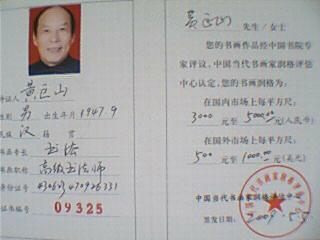 持证人 黄巨山
性别 男 出生年月 1947.9
民族 汉 籍贯
书画专长 书法
书画职称 高级书法师
身份证号
证书编号 09325
黄巨山 先生/女士
您的书画作品经中国书院专
家评议,中国当代书画家润格评估
中心认定,您的书画润格为:
在国内市场上每平方尺:
3000 元至 5000 元(人民币)
在国外市场上每平方尺:
500 元至 1000.00 元(美元)
中国当代书画家润格评估中心
签发日期: